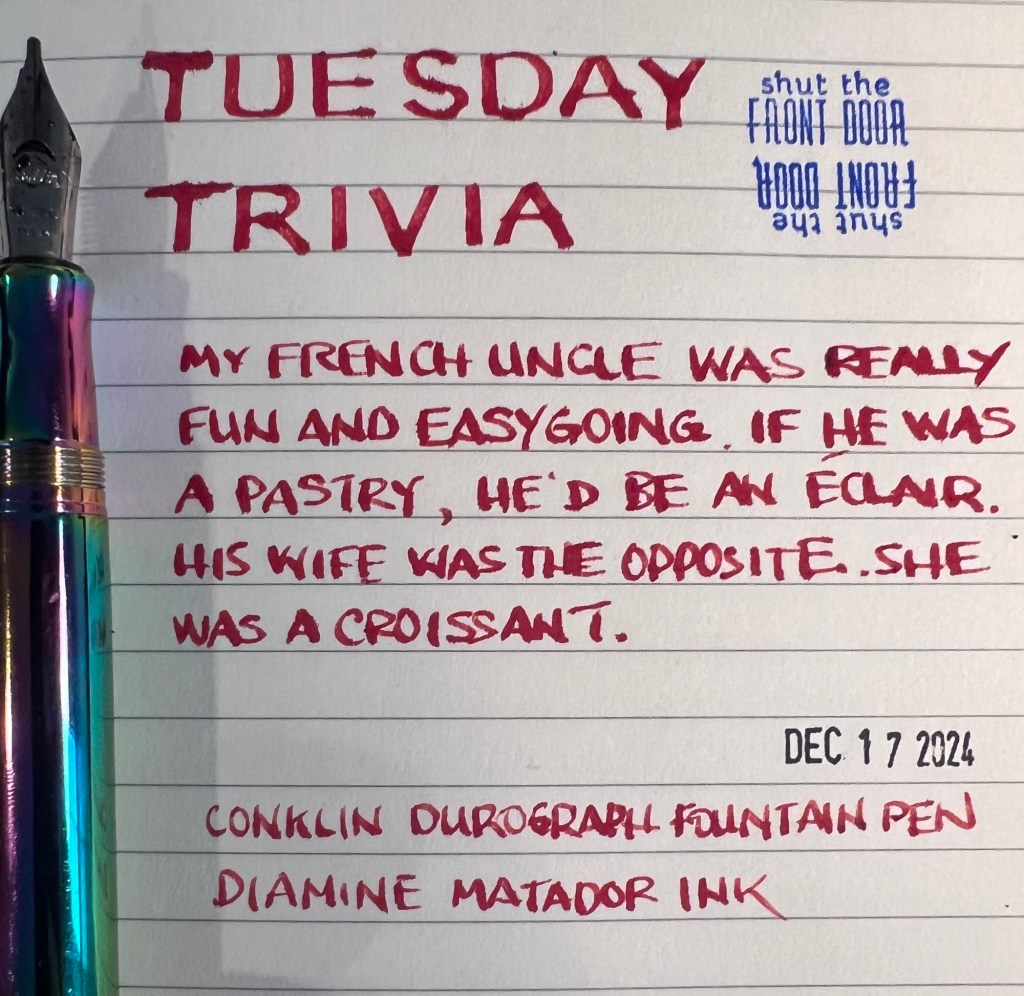 TUESDAY
TRIVIA
shut the
FRONT DOOR
FRONT DOOR
shut the
MY FRENCH UNCLE WAS REALLY
FUN AND EASYGOING. IF HE WAS
A PASTRY, HE'D BE AN ÉCLAIR.
HIS WIFE WAS THE OPPOSITE. SHE
WAS A CROISSANT.
DEC 17 2024
CONKLIN DUROGRAPH FOUNTAIN PEN
DIAMINE MATADOR INK